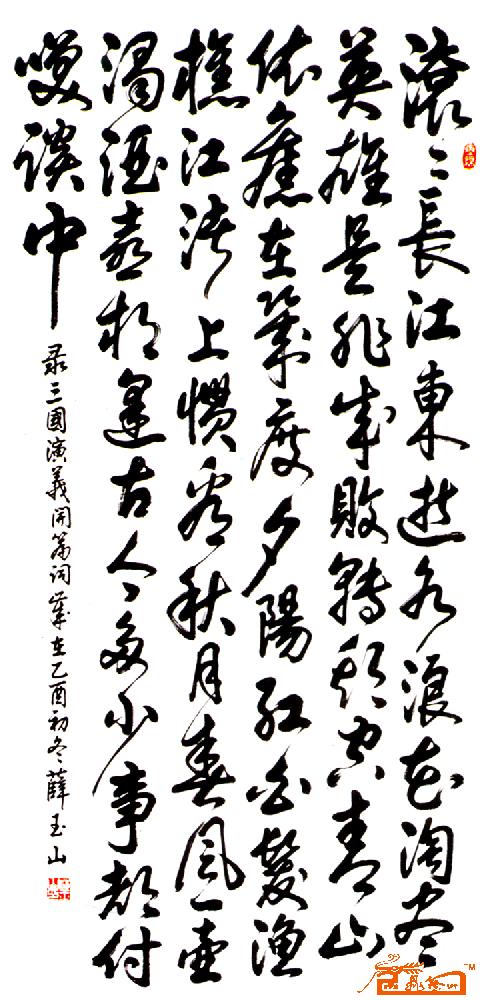 滚〻長江東逝水浪花淘尽
英雄是非成敗轉頭空青山
依舊在幾度夕陽紅白髮渔
樵江渚上慣看秋月春风一壶
濁酒喜相逢古今多少事都付
咲談中
录三國演義開篇词歲在乙酉初冬薛玉山